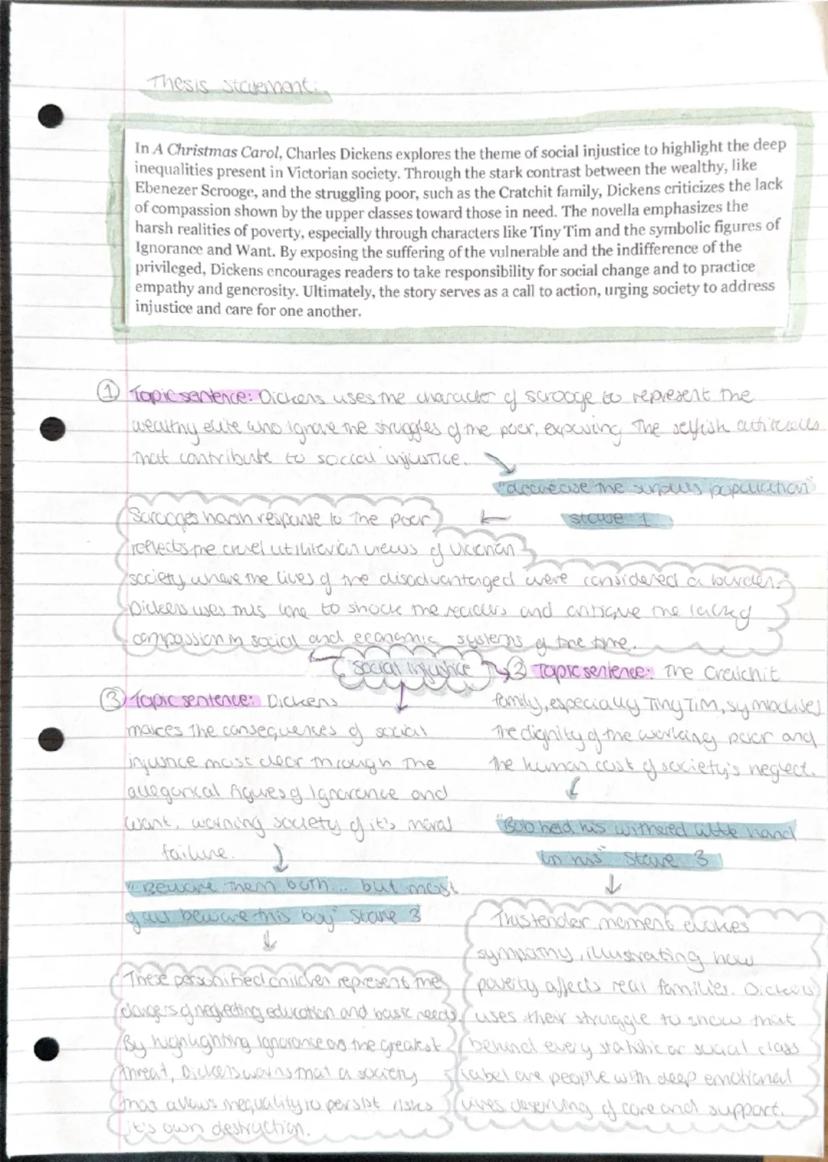 Thesis statement:
In A Christmas Carol, Charles Dickens explores the theme of social injustice to highlight the deep
inequalities present in Victorian society. Through the stark contrast between the wealthy, like
Ebenezer Scrooge, and the struggling poor, such as the Cratchit family, Dickens criticizes the lack
of compassion shown by the upper classes toward those in need. The novella emphasizes the
harsh realities of poverty, especially through characters like Tiny Tim and the symbolic figures of
Ignorance and Want. By exposing the suffering of the vulnerable and the indifference of the
privileged, Dickens encourages readers to take responsibility for social change and to practice
empathy and generosity. Ultimately, the story serves as a call to action, urging society to address
injustice and care for one another.
① Topic sentence: Dickens uses the character of scrooge to represent the
wealthy elite who ignore the struggles of the poor, exposing the selfish attitudes
that contribute to social injustice.
"decrease the surplus population"
stave 1
Scrooges harsh response to the poor
reflects the cruel utilitarian views of Victorian
society where the lives of the disadvantaged were considered a burden.
Dickens uses this line to shock the readers and critique the lack of
compassion in social and economic systems of the time.
Social injustice
② Topic sentence: The Cratchit
family, especially Tiny Tim, symbolises
the dignity of the working poor and
the human cost of society's neglect.
"Bob held his withered little hand
in his" Stave 3
This tender moment evokes
sympathy, illustrating how
poverty affects real families. Dickens
uses their struggle to show that
behind every statistic or social class
label are people with deep emotional
lives deserving of care and support.
③ Topic sentence: Dickens
makes the consequences of social
injustice most clear through the
allegorical figures of Ignorance and
Want, warning society of it's moral
failure.
"Beware them both... but most
of all beware this boy" Stave 3
These personified children represent the
dangers of neglecting education and basic needs.
By highlighting Ignorance as the greatest
threat, Dickens warns that a society
that allows inequality to persist risks
it's own destruction.